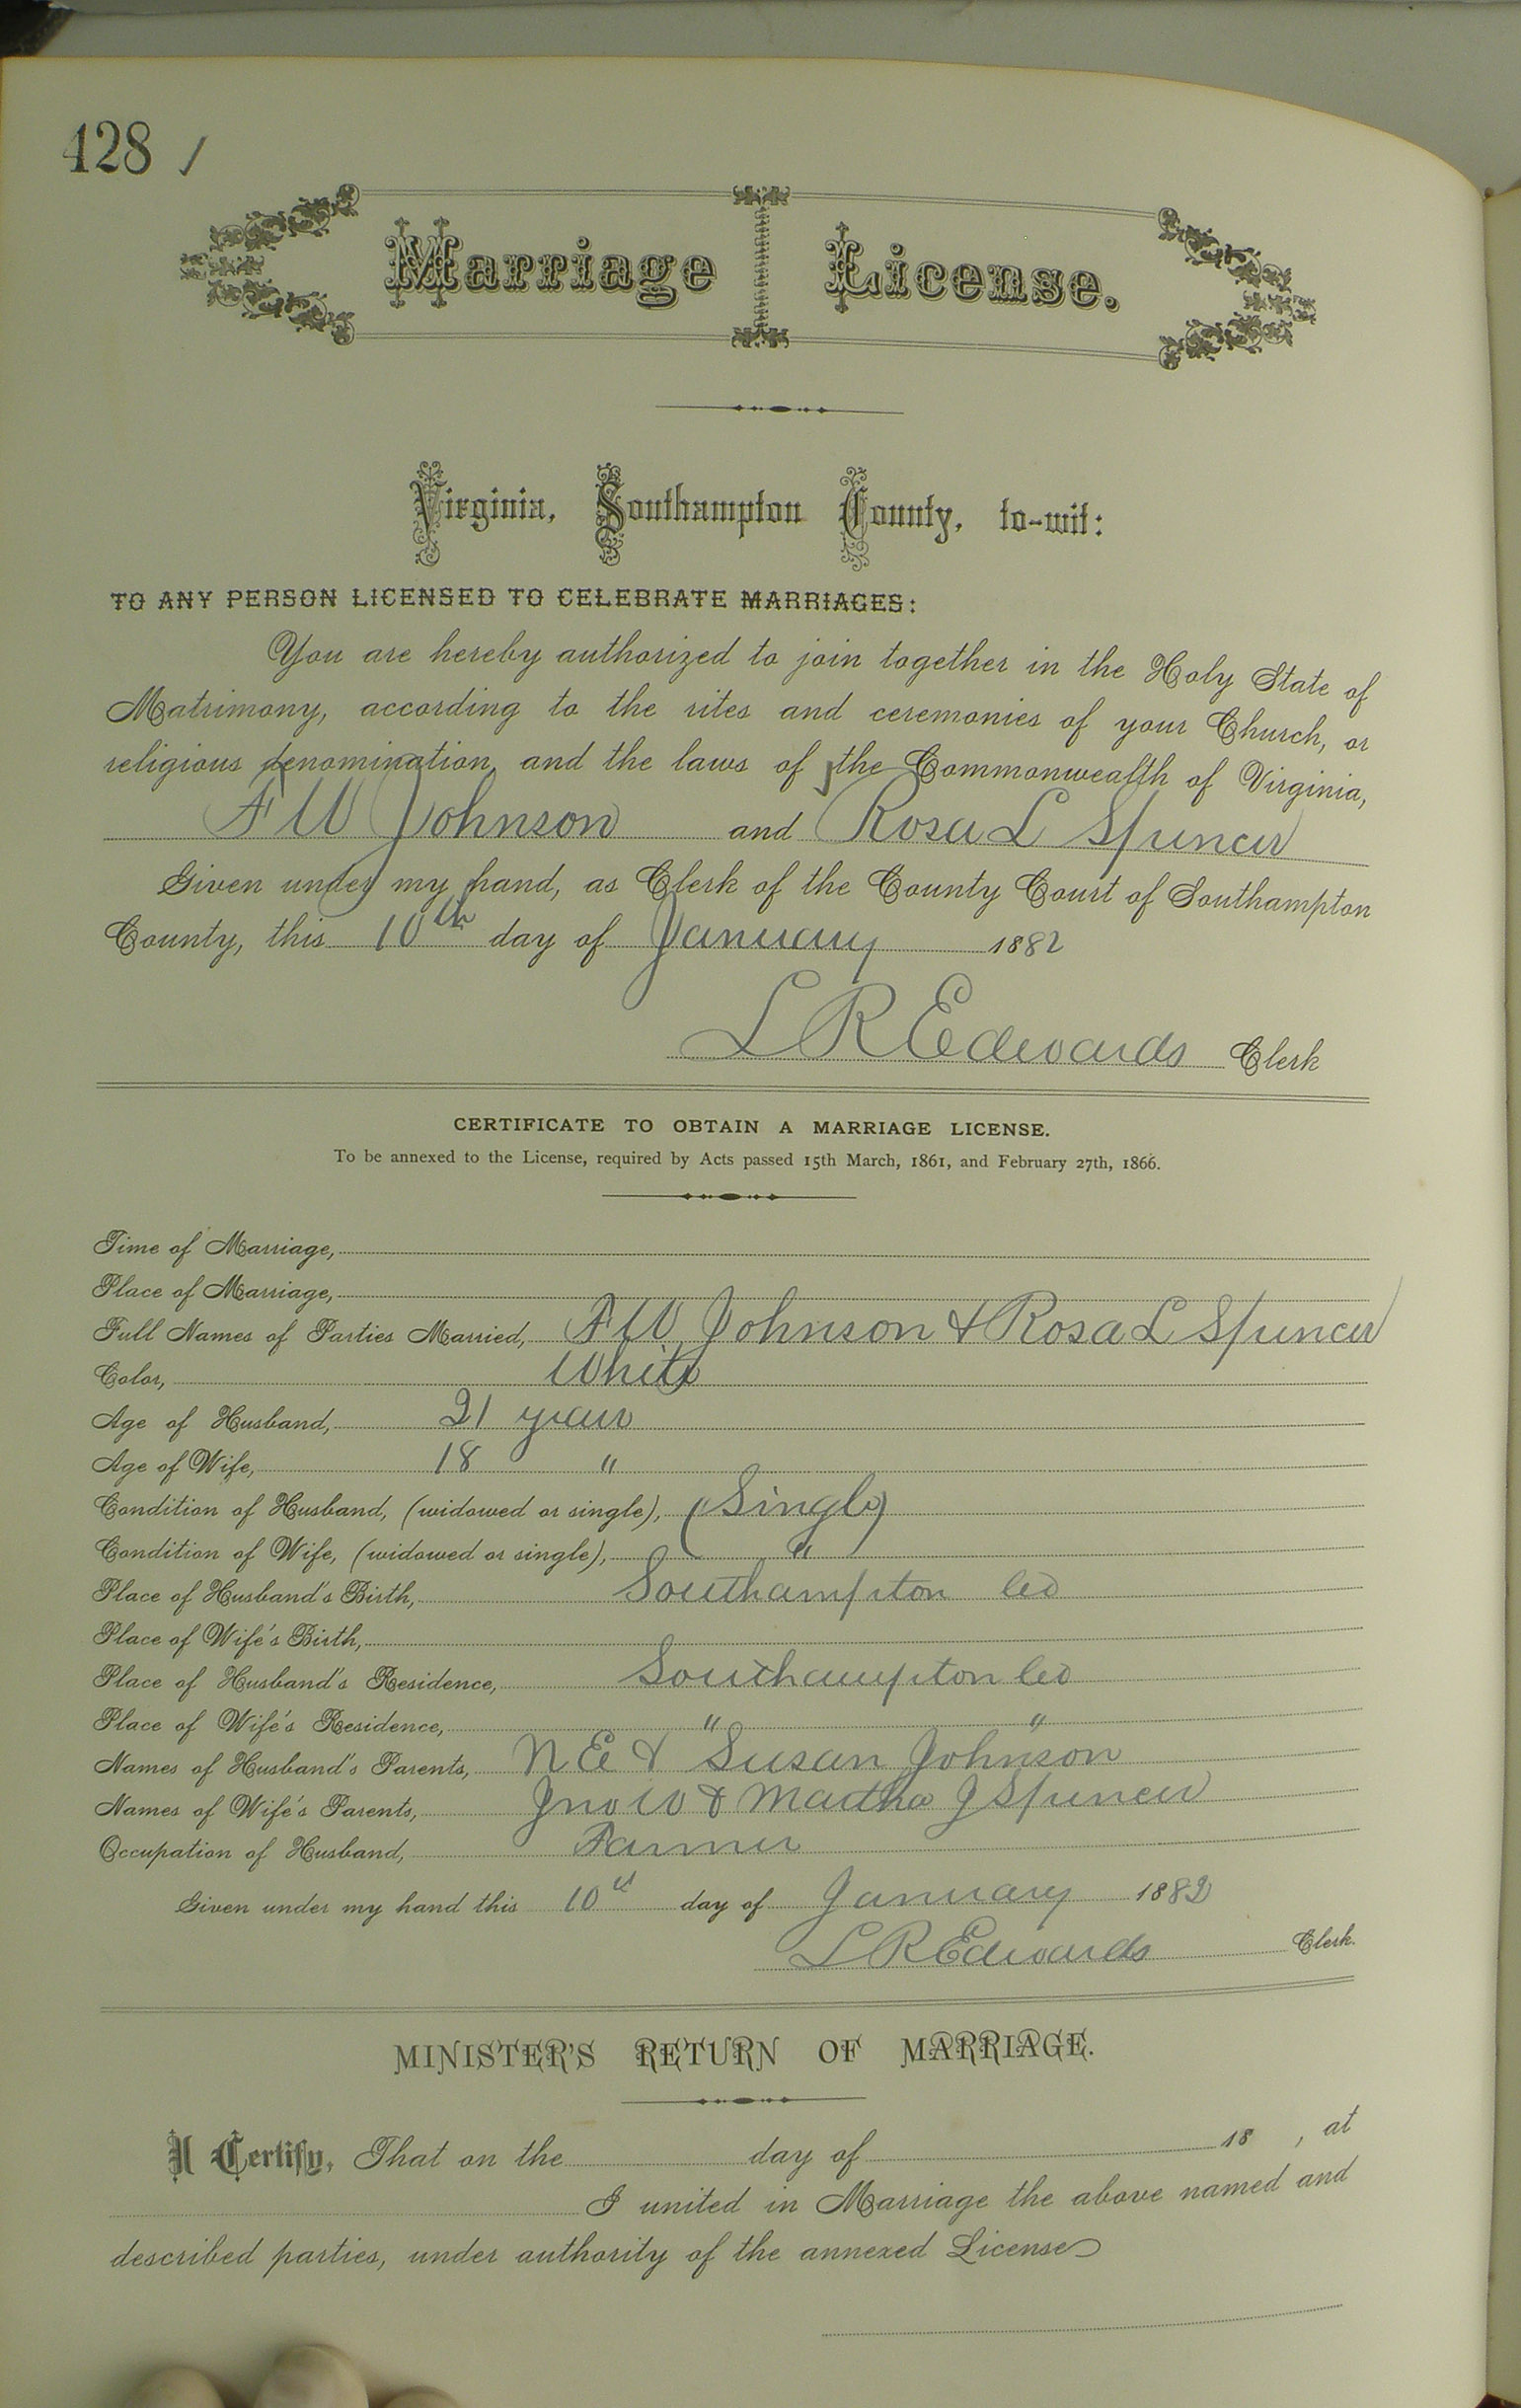 428 /
Marriage License.
Virginia, Southampton County, to-wit:
TO ANY PERSON LICENSED TO CELEBRATE MARRIAGES:
You are hereby authorized to join together in the Holy State of
Matrimony, according to the rites and ceremonies of your Church, or
religious denomination, and the laws of the Commonwealth of Virginia,
F W Johnson and Rosa L Spencer
Given under my hand, as Clerk of the County Court of Southampton
County, this 10th day of January 1882
L R Edwards Clerk
CERTIFICATE TO OBTAIN A MARRIAGE LICENSE.
To be annexed to the License, required by Acts passed 15th March, 1861, and February 27th, 1866.
Time of Marriage,
Place of Marriage,
Full Names of Parties Married, F W Johnson & Rosa L Spencer
Color, White
Age of Husband, 21 years
Age of Wife, 18 "
Condition of Husband, (widowed or single), (Single)
Condition of Wife, (widowed or single), "
Place of Husband's Birth, Southampton Co
Place of Wife's Birth,
Place of Husband's Residence, Southampton Co
Place of Wife's Residence, " "
Names of Husband's Parents, N E & Susan Johnson
Names of Wife's Parents, Jno W & Martha J Spencer
Occupation of Husband, Farmer
Given under my hand this 10th day of January 1882
L R Edwards Clerk.
MINISTER'S RETURN OF MARRIAGE.
I Certify, That on the day of 18 , at
I united in Marriage the above named and
described parties, under authority of the annexed License